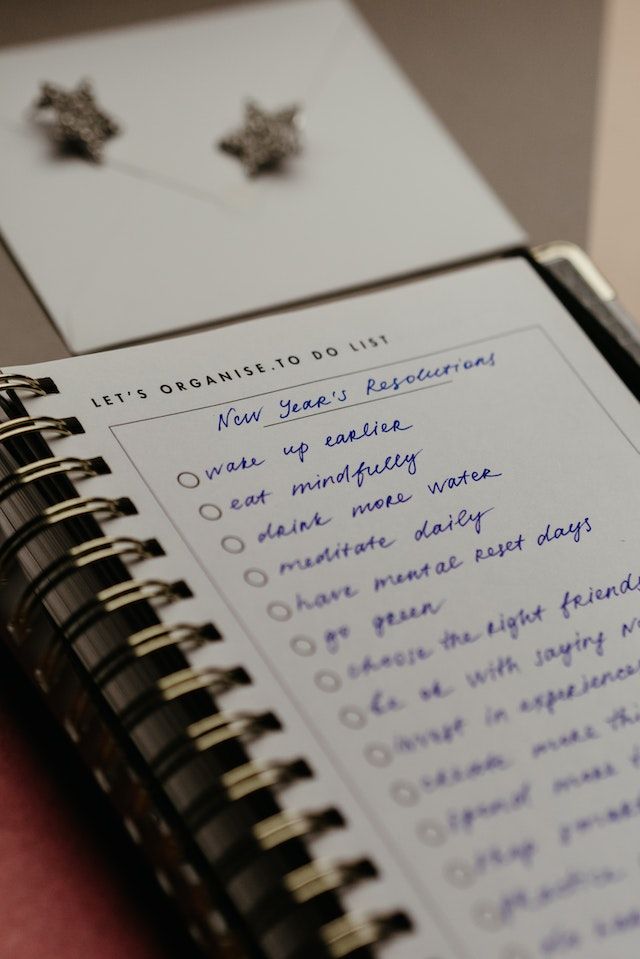 LET'S ORGANISE.TO DO LIST
New Year's Resolutions
wake up earlier
eat mindfully
drink more water
meditate daily
have mental reset days
go green
choose the right friends
be ok with saying
invest in
create more
spend more
stop
practice